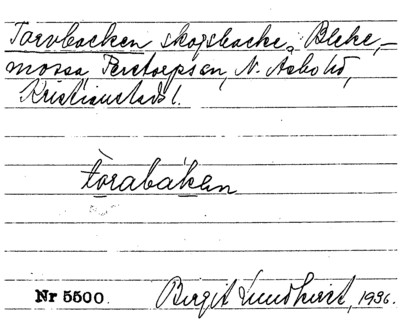 Torvbacken skogsbacke, Bleke,-
mossa, Perstorps sn, N. Åsbo hd,
Kristianstads l.
tòrabákan
Nr 5500. Birgit Lundkvist, 1936.